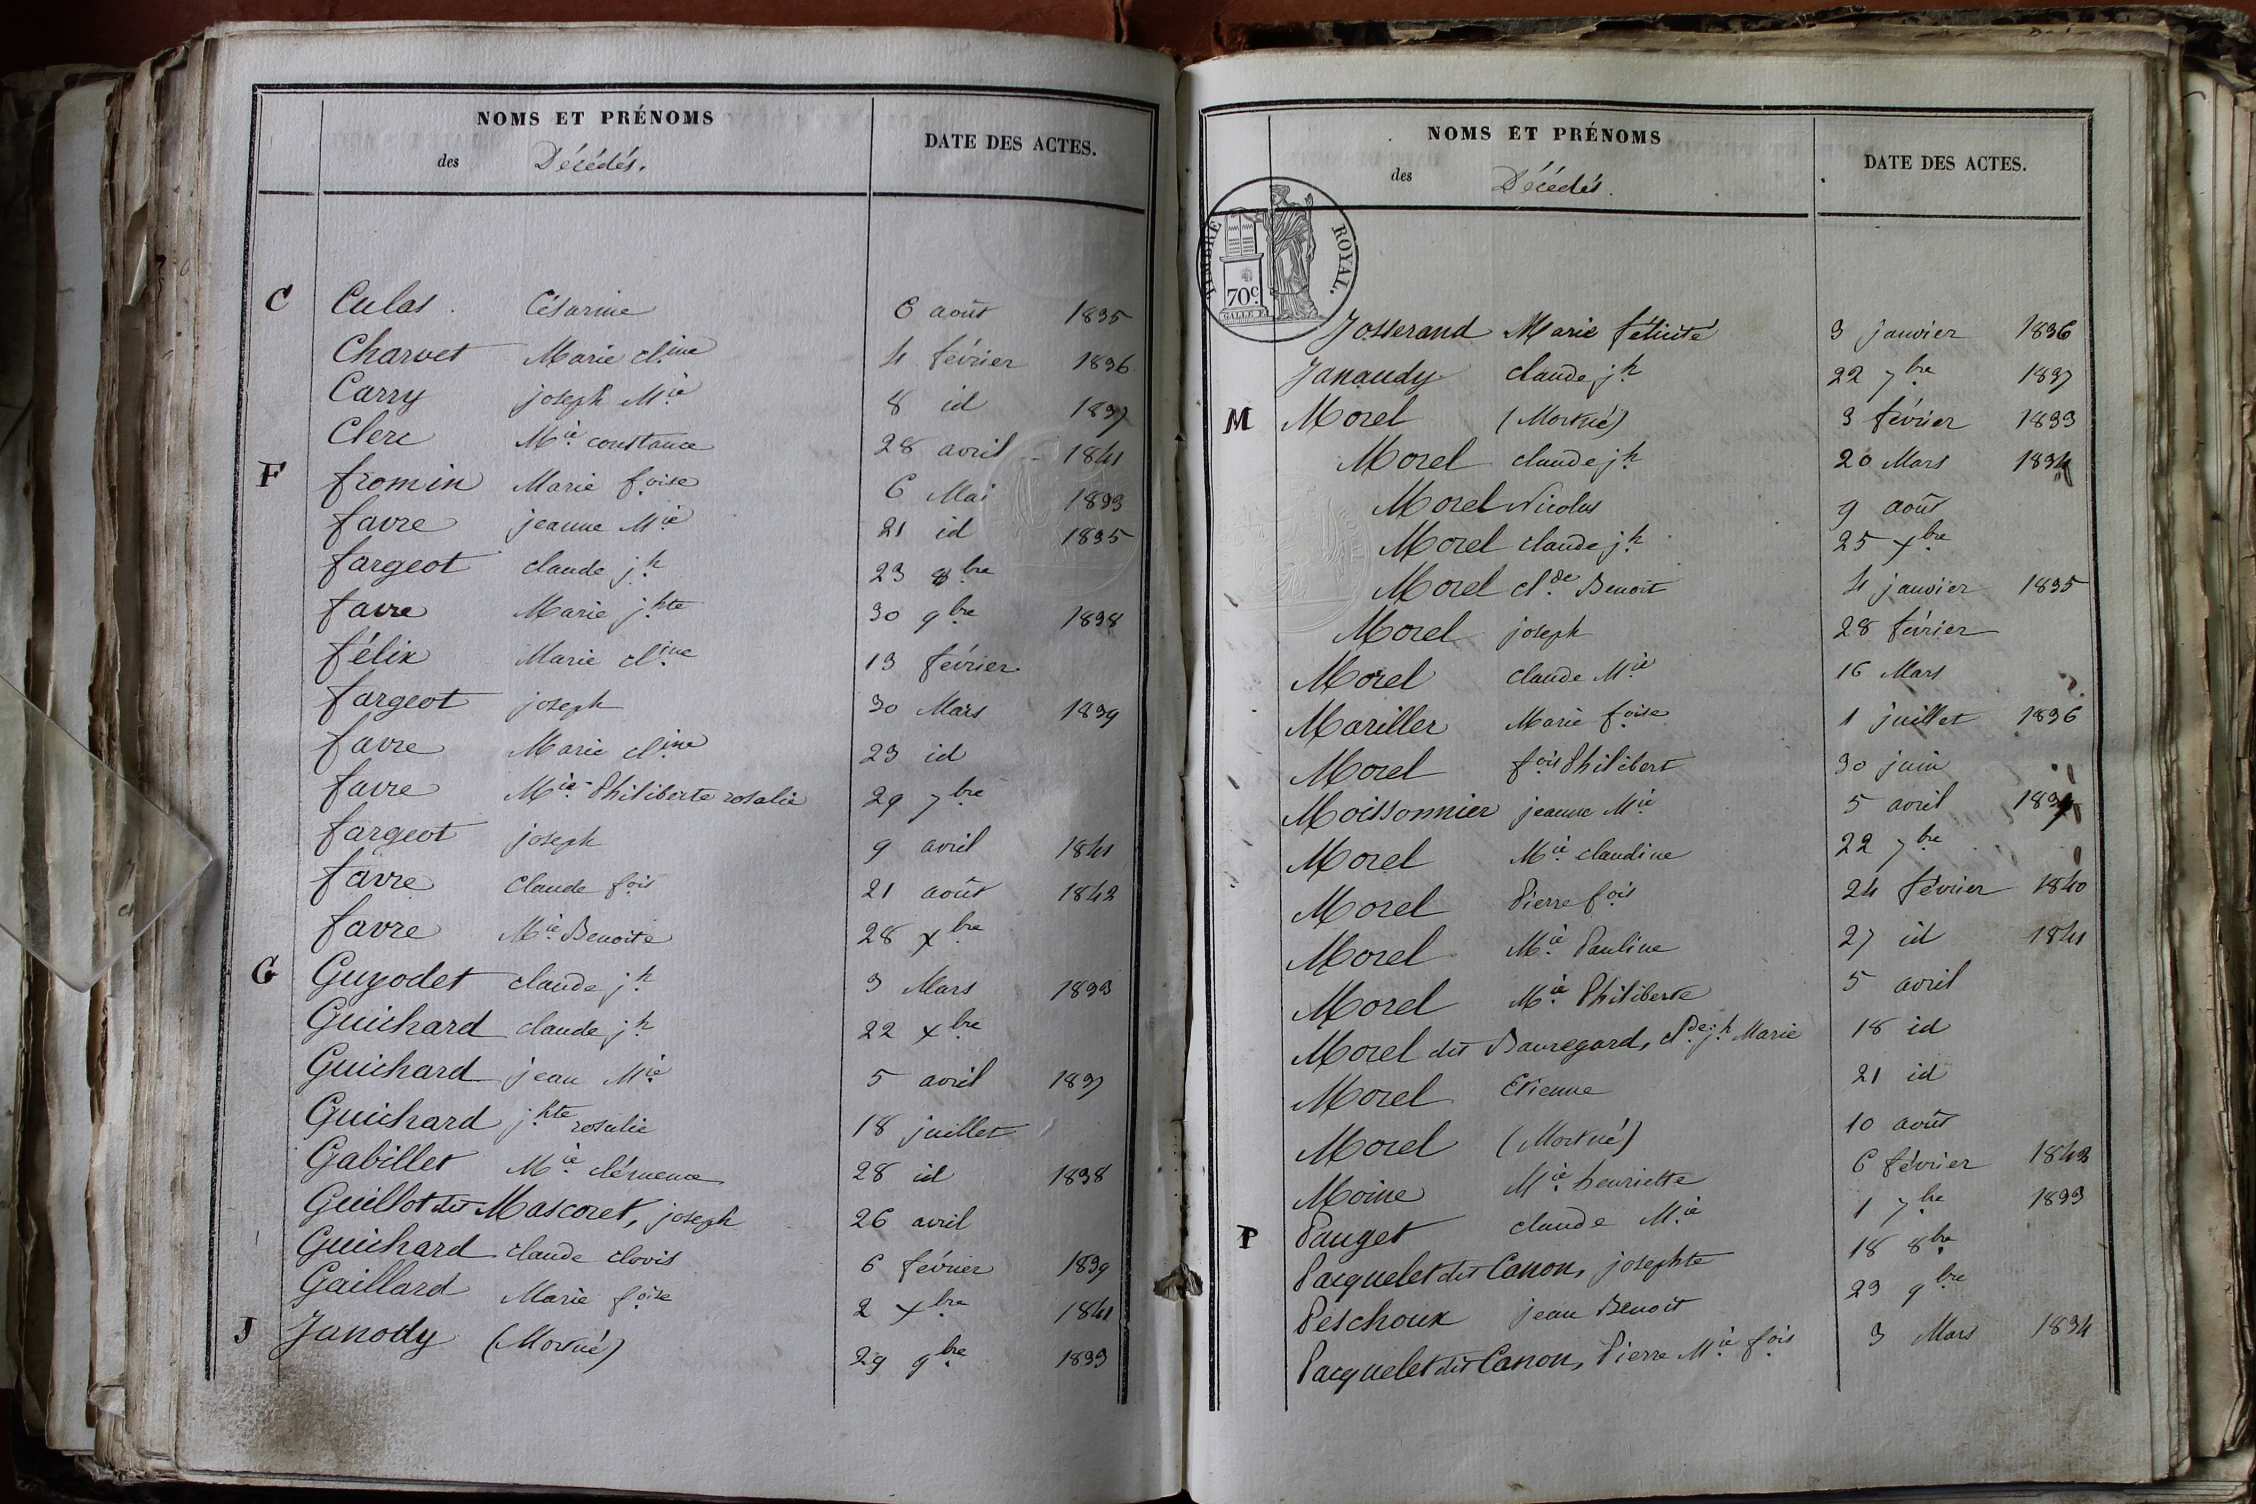 NOMS ET PRÉNOMS
des Décédés.
DATE DES ACTES.
C Culas Césarine 6 août 1835
Charvet Marie cl.ine 4 février 1836
Carry joseph M.ie 8 id 1837
Clerc M.ie constance 28 avril 1841
F fromin Marie f.oise 6 Mai 1833
favre jeanne M.ie 21 id 1835
fargeot claude j.h 23 8.bre
favre Marie j.hte 30 9.bre 1838
félix Marie cl.ine 13 février
fargeot joseph 30 Mars 1839
favre Marie cl.ine 23 id
favre M.ie Philiberte rosalie 29 7.bre
fargeot joseph 9 avril 1841
favre Claude f.ois 21 août 1842
favre M.ie Benoite 28 x.bre
G Guyodet claude j.h 3 Mars 1833
Guichard claude j.h 22 x.bre
Guichard jean M.ie 5 avril 1837
Guichard j.hte rosalie 18 juillet
Gabillet M.ie clémence 28 id 1838
Guillot dit Mascoret, joseph 26 avril
Guichard claude clovis 6 février 1839
Gaillard Marie f.oise 2 x.bre 1841
J Janody (Mort né) 29 9.bre 1833
NOMS ET PRÉNOMS
des Décédés.
DATE DES ACTES.
TIMBRE ROYAL.
70c.
Josserand Marie félicité 3 janvier 1836
Janaudy claude j.h 22 7.bre 1837
M Morel (Mort né) 3 février 1833
Morel claude j.h 20 Mars 1834
Morel Nicolas 9 août
Morel claude j.h 25 x.bre
Morel cl.de Benoit 4 janvier 1835
Morel joseph 28 février
Morel claude M.ie 16 Mars
Mariller Marie f.oise 1 juillet 1836
Morel f.ois Philibert 30 juin
Moissonnier jeanne M.ie 5 avril
Morel M.ie claudine 22 7.bre
Morel Pierre f.ois 24 février 1840
Morel M.ie Pauline 27 id 1841
Morel M.ie Philiberte 5 avril
Morel dit Bauregard, cl.de j.h Marie 18 id
Morel Etienne 21 id
Morel (Mort né) 10 août
Moine M.ie henriette 6 février
P Pauget claude M.ie 1 7.bre 1833
Pacquelet dit Canon, josephte 18 8.bre
Peschoux jean Benoit 23 9.bre
Pacquelet dit Canon, Pierre M.ie f.ois 3 Mars 1834